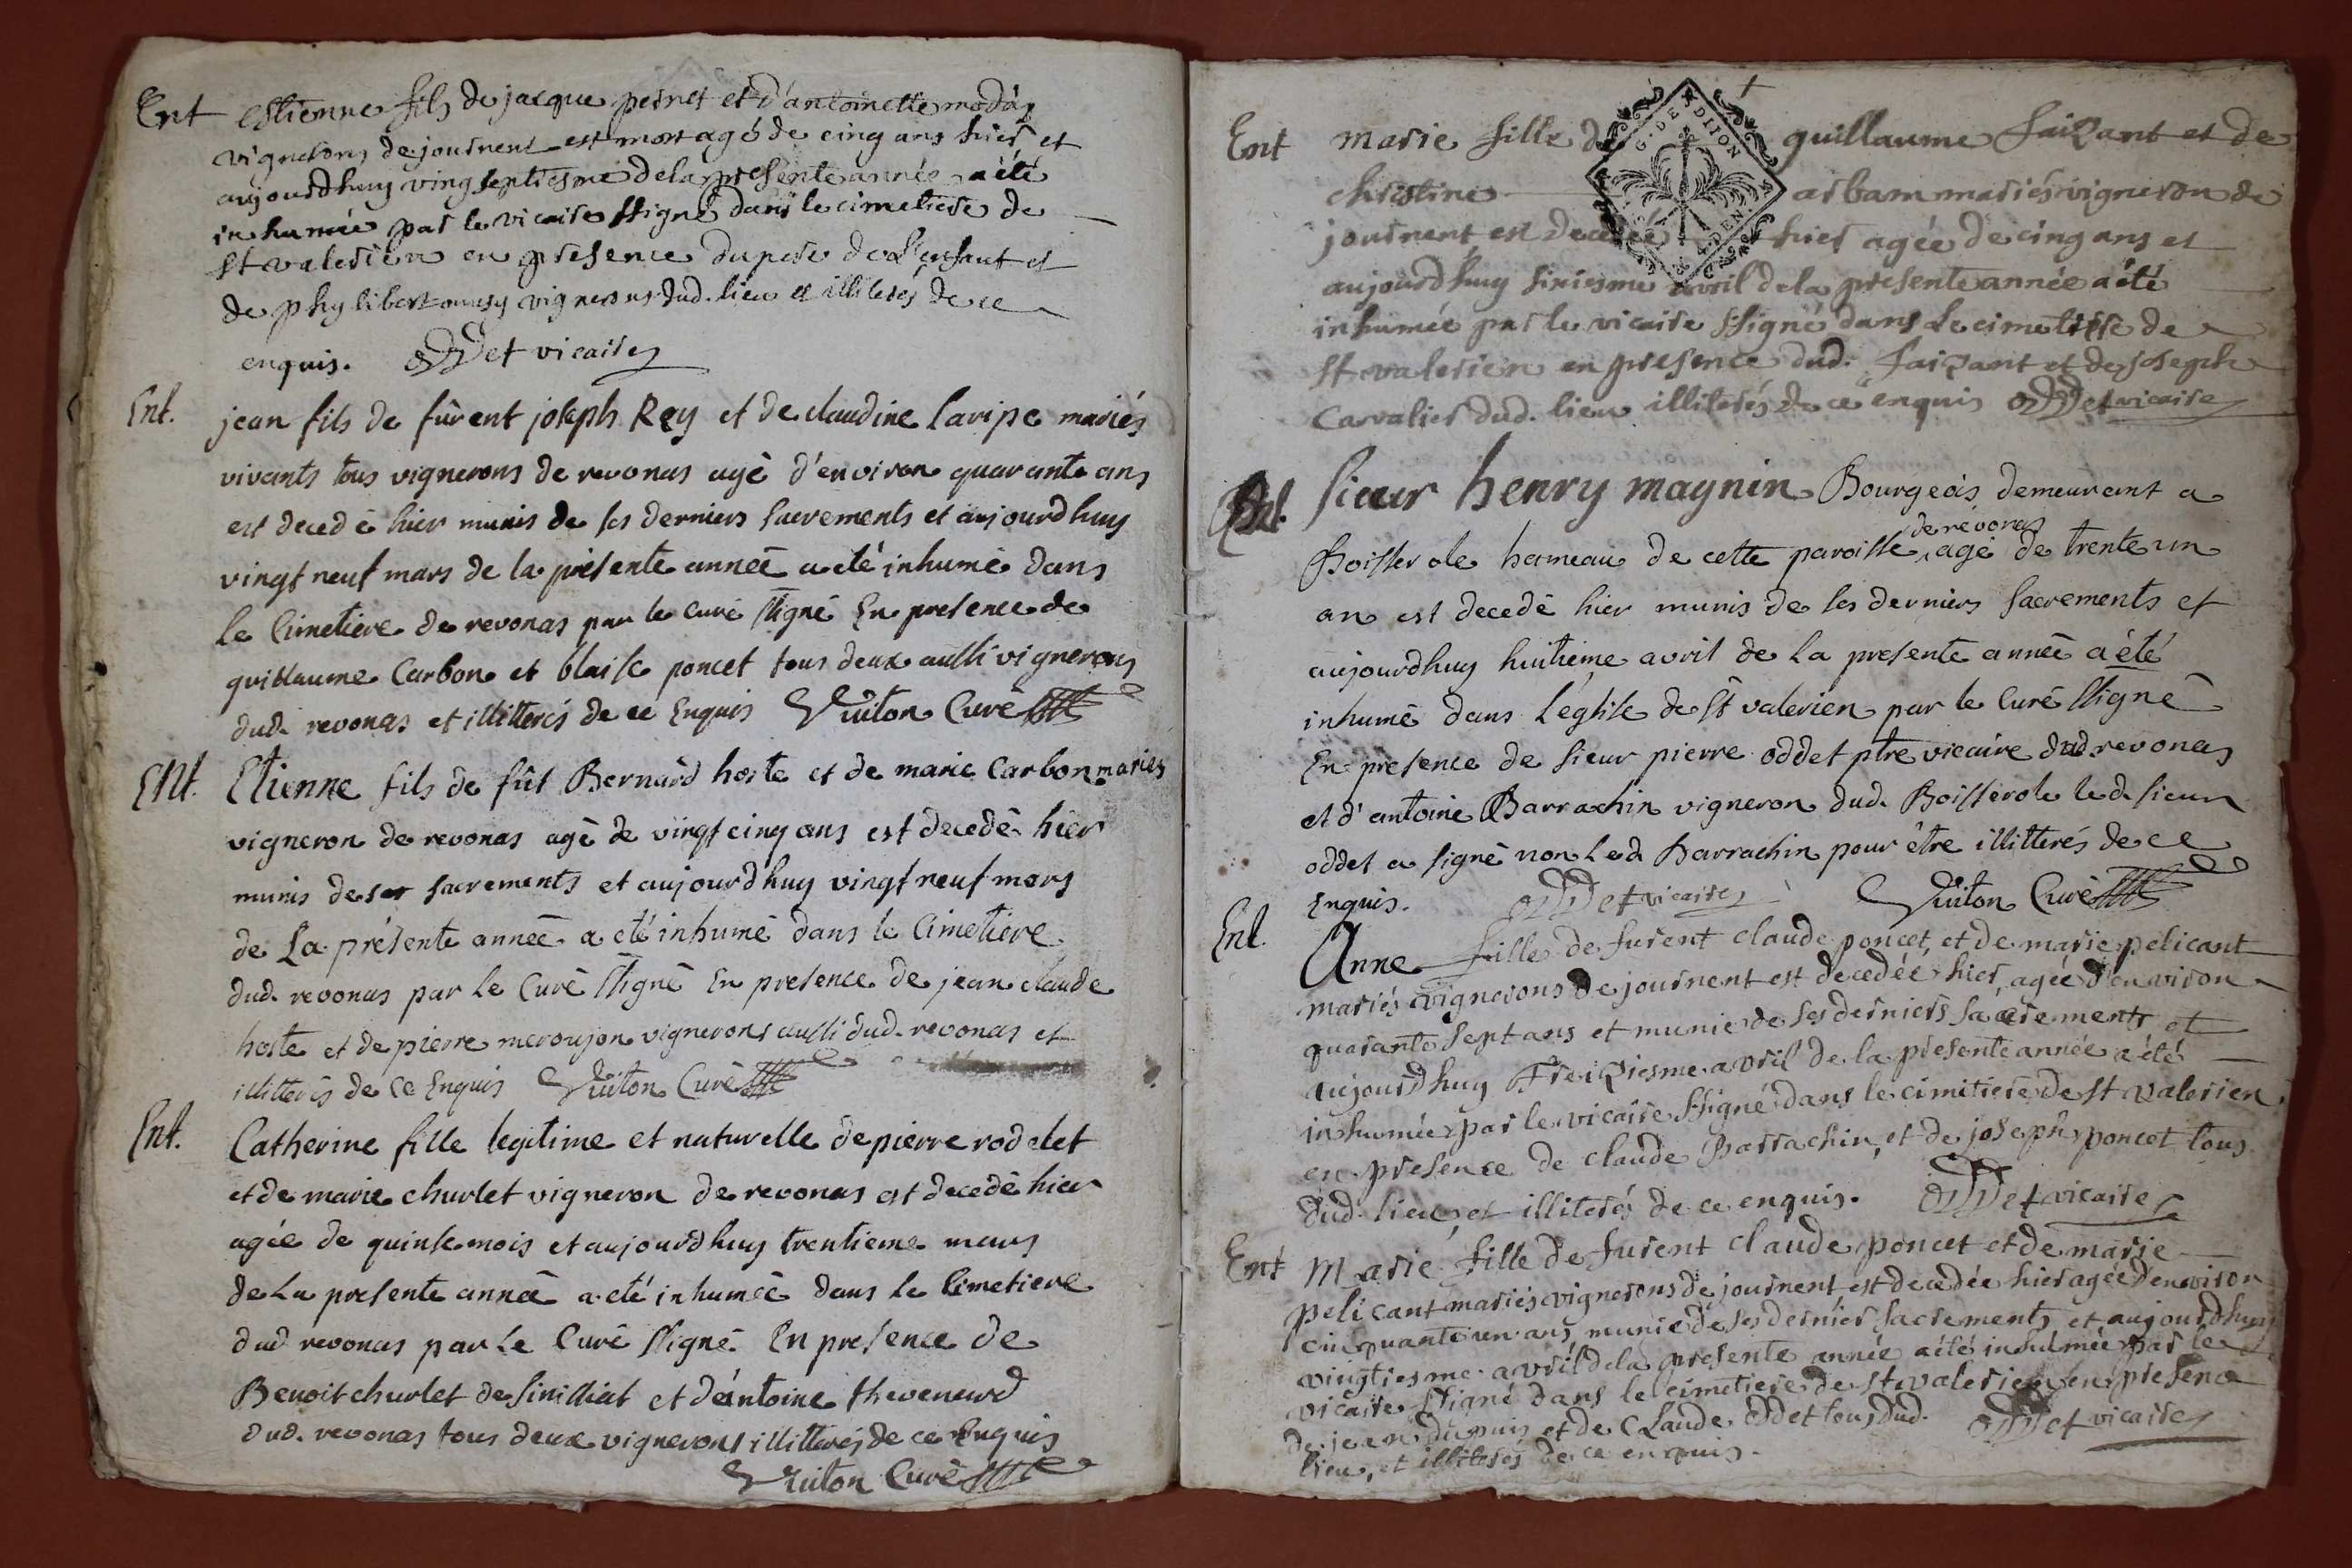 Ent estienne fils de jacque pernet et d'antoinette modas
vignerons de journent est mort agé de cinq ans hier et
aujourdhuy vingseptiesme de la presente année a été
inhumée par le vicaire ssigné dans le cimetiere de
st valerien en presence du pere de l'enfant et
de phylibert vignerons dud. lieu et illiterés de ce
enquis. Oddet vicaire
Ent. jean fils de fûrent joseph Rey et de claudine Laripe mariés
vivants tous vignerons de revonas agé d'environ quarante ans
est decedé hier munis de ses derniers sacrements et aujourdhuy
vingt neuf mars de la présente année a eté inhumé dans
le Cimetiere de revonas par le curé ssigné En presence de
guillaume Carbon et blaise poncet tous deux aussi vignerons
dud. revonas et illitterés de ce Enquis Vuiton Curé
Ent. Etienne fils de fût Bernard hoste et de marie Carbon mariés
vigneron de revonas agé de vingt cinq ans est decedé hier
munis de ses sacrements et aujourdhuy vingt neuf mars
de La présente année a eté inhumé dans le Cimetiere
dud. revonas par Le Curé ssigné En presence de jean claude
hoste et de pierre meroujon vignerons aussi dud. revonas et
illitterés de ce Enquis Vuiton Curé
Ent. Catherine fille legitime et naturelle de pierre rodelet
et de marie churlet vigneron de revonas est decedé hier
agée de quinse mois et aujourdhuy trentieme mars
de La presente année a eté inhumée dans le Cimetiere
dud revonas par Le Curé ssigné En presence de
Benoit churlet de simillat et d'antoine thevenard
dud. revonas tous deux vignerons illitterés de ce Enquis
Vuiton Curé
G. DE DIJON
Ent marie fille de guillaume faizant et de
christine arbam mariés vigneron de
journent est decedée hier agée de cinq ans et
aujourdhuy sixiesme avril de la presente année a été
inhumée par le vicaire ssigné dans le cimetiere de
st valerien en presence dud. faizant et de joseph
Carvalier dud. lieu illiterés de ce enquis Oddet vicaire
Ent. sieur henry maynin Bourgeois demeurant a
Boisserole hameau de cette paroisse de revonas agé de trente un
an est decedé hier munis de ses derniers sacrements et
aujourdhuy huitieme avril de la presente année a été
inhumé dans L'eglise de st valerien par le Curé ssigné
En presence de sieur pierre oddet ptre vicaire dud revonas
et d'antoine Barrachin vigneron dud. Boisserole led. sieur
oddet a signé non Led Barrachin pour être illitterés de ce
Enquis. Oddet vicaire Vuiton Curé
Ent. Anne fille de furent claude poncet, et de marie pelicant
mariés vignerons de journent est decedée hier, agée d'environ
quarante sept ans et munie de ses derniers sacrements et
aujourdhuy treiziesme avril de la presente année a été
inhumée par le vicaire ssigné dans le cimitiere de st valerien
en presence de claude Barrachin, et de joseph poncet tous
dud. lieu et illiterés de ce enquis. Oddet vicaire
Ent Marie fille de furent claude poncet et de marie
pelicant mariés vignerons de journent est decedée hier agée d'environ
cinquante un ans munie de ses dernier sacrements et aujourdhuy
vingtiesme avril de la presente année a été inhumée par le
vicaire ssigné dans le cimetiere de st valerien en presence
de jean dupuis et de claude oddet tous dud. Oddet vicaire
lieu, et illiterés de ce enquis.